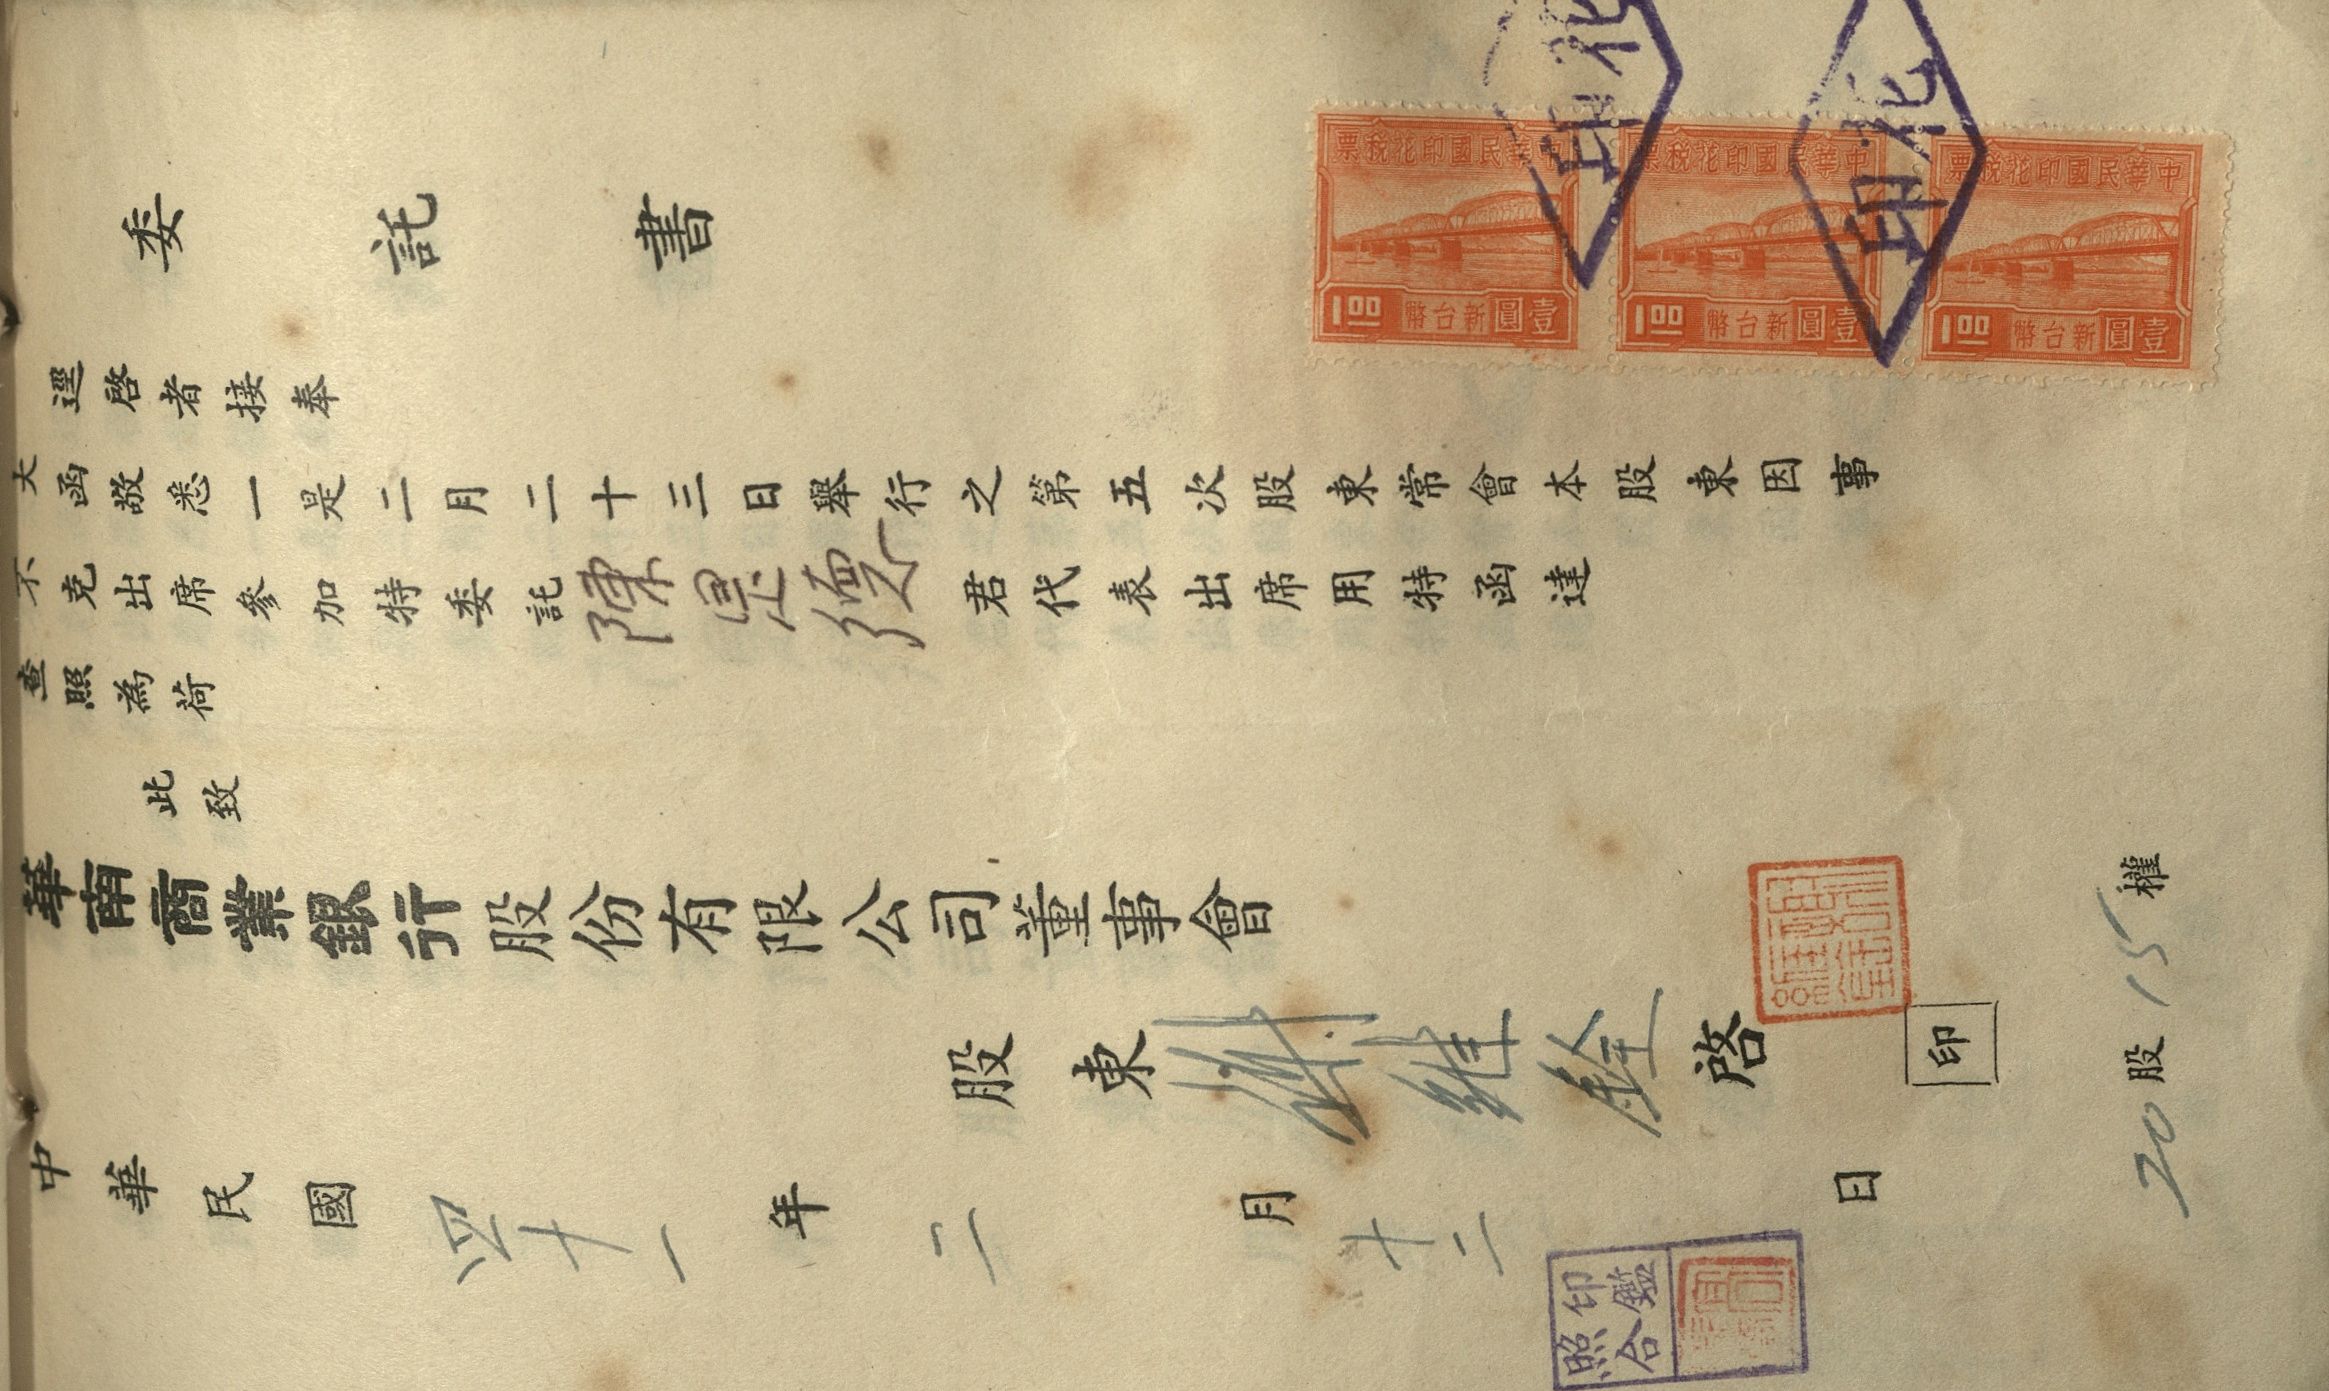 委託書
逕啓者接奉
大函敬悉一是二月二十三日舉行之第五次股東常會本股東因事
不克出席參加特委託陳思德君代表出席用特函達
查照為荷
此致
華南商業銀行股份有限公司董事會
股東 維銓 啓
印
中華民國四十一年二月十二日
20股15權
印鑑
照合
中華民國印花稅票
1.00 新台幣壹圓
中華民國印花稅票
1.00 新台幣壹圓
中華民國印花稅票
1.00 新台幣壹圓
印花
印花